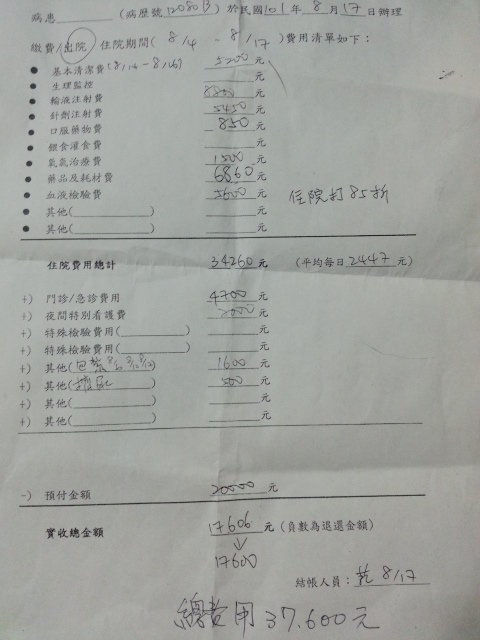 病患________(病歷號 12080B)於民國101年8月17日辦理
繳費/出院/住院期間(8/4 - 8/17)費用清單如下：
● 基本清潔費(8/14-8/16) 5200元
● 生理監控 ____元
● 輸液注射費 8850元
● 針劑注射費 5450元
● 口服藥物費 850元
● 餵食灌食費 ____元
● 氧氣治療費 1500元
● 藥品及耗材費 6860元
● 血液檢驗費 5600元 住院打85折
● 其他(________) ____元
● 其他(________) ____元
住院費用總計 34260元 (平均每日2447元)
+) 門診/急診費用 4700元
+) 夜間特別看護費 2000元
+) 特殊檢驗費用(________) ____元
+) 特殊檢驗費用(________) ____元
+) 其他(包紮) 1600元
+) 其他(擠尿) 500元
+) 其他(________) ____元
+) 其他(________) ____元
-) 預付金額 20000元
實收總金額 17606元 (負數為退還金額)
↓
17600
結帳人員： 8/17
總費用 37.600元